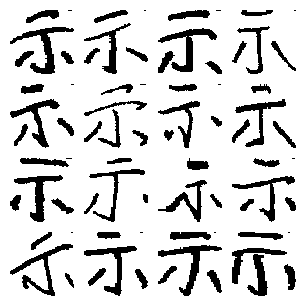 示示示示
示示示示
示示示示
示示示示